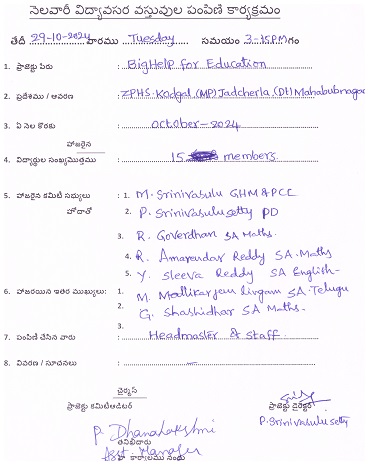 నెలవారీ విద్యావసర వస్తువుల పంపిణి కార్యక్రమం
తేదీ 29-10-2024 వారము Tuesday సమయం 3-15PM గం
1. ప్రాజెక్టు పేరు : BigHelp for Education
2. ప్రదేశము / ఆవరణ : ZPHS-Kodgal (MP) Jadcherla (Dt) Mahabubnagar
3. ఏ నెల కొరకు : October-2024
హాజరైన
4. విద్యార్థుల సంఖ్య మొత్తము : 15 members
5. హాజరైన కమిటి సభ్యులు : 1. M. Srinivasulu GHM & PCC
హోదాతో 2. P. Srinivasulu setty PD
3. R. Goverdhan SA Maths.
4. R. Amarendar Reddy SA. Maths
5. Y. Sleeva Reddy SA English-
6. హాజరయిన ఇతర ముఖ్యులు: 1. M. Mallikarjun Lingam SA-Telugu
2. G. Shashidhar SA Maths.
3.
7. పంపిణి చేసిన వారు : Headmaster & staff.
8. వివరణ / సూచనలు : —
ఛైర్మన్
ప్రాజెక్టు కమిటి ప్రాజెక్టు డైరెక్టర్
P. Srinivasulu setty
P. Dhanalakshmi
తనిఖీదారు
Asst. Manager